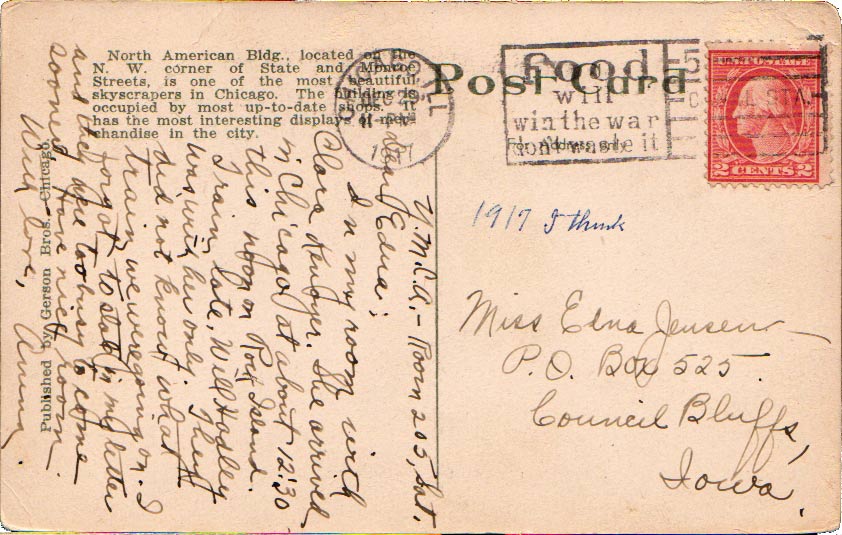 North American Bldg., located on the
N. W. corner of State and Monroe
Streets, is one of the most beautiful
skyscrapers in Chicago. The building is
occupied by most up-to-date shops. It
has the most interesting displays of mer-
chandise in the city.
Post Card
For Address only
Food
will
win the war
don't waste it
U.S. POSTAGE
2 CENTS 2
1917 I think
Miss Edna Jensen
P.O. Box 525
Council Bluffs,
Iowa.
Y.M.C.A. - Room 205, Sat.
Dear Edna;
In my room with
Clara. She arrived
in Chicago at about 12:30
this noon on Rock Island.
Train late. Will Hadley
was with her only. They
did not know what
train we were going on. I
forgot to state in my letter
and they are too busy to come
sooner. Have nice room.
With love,
Published by Gerson Bros. Chicago.